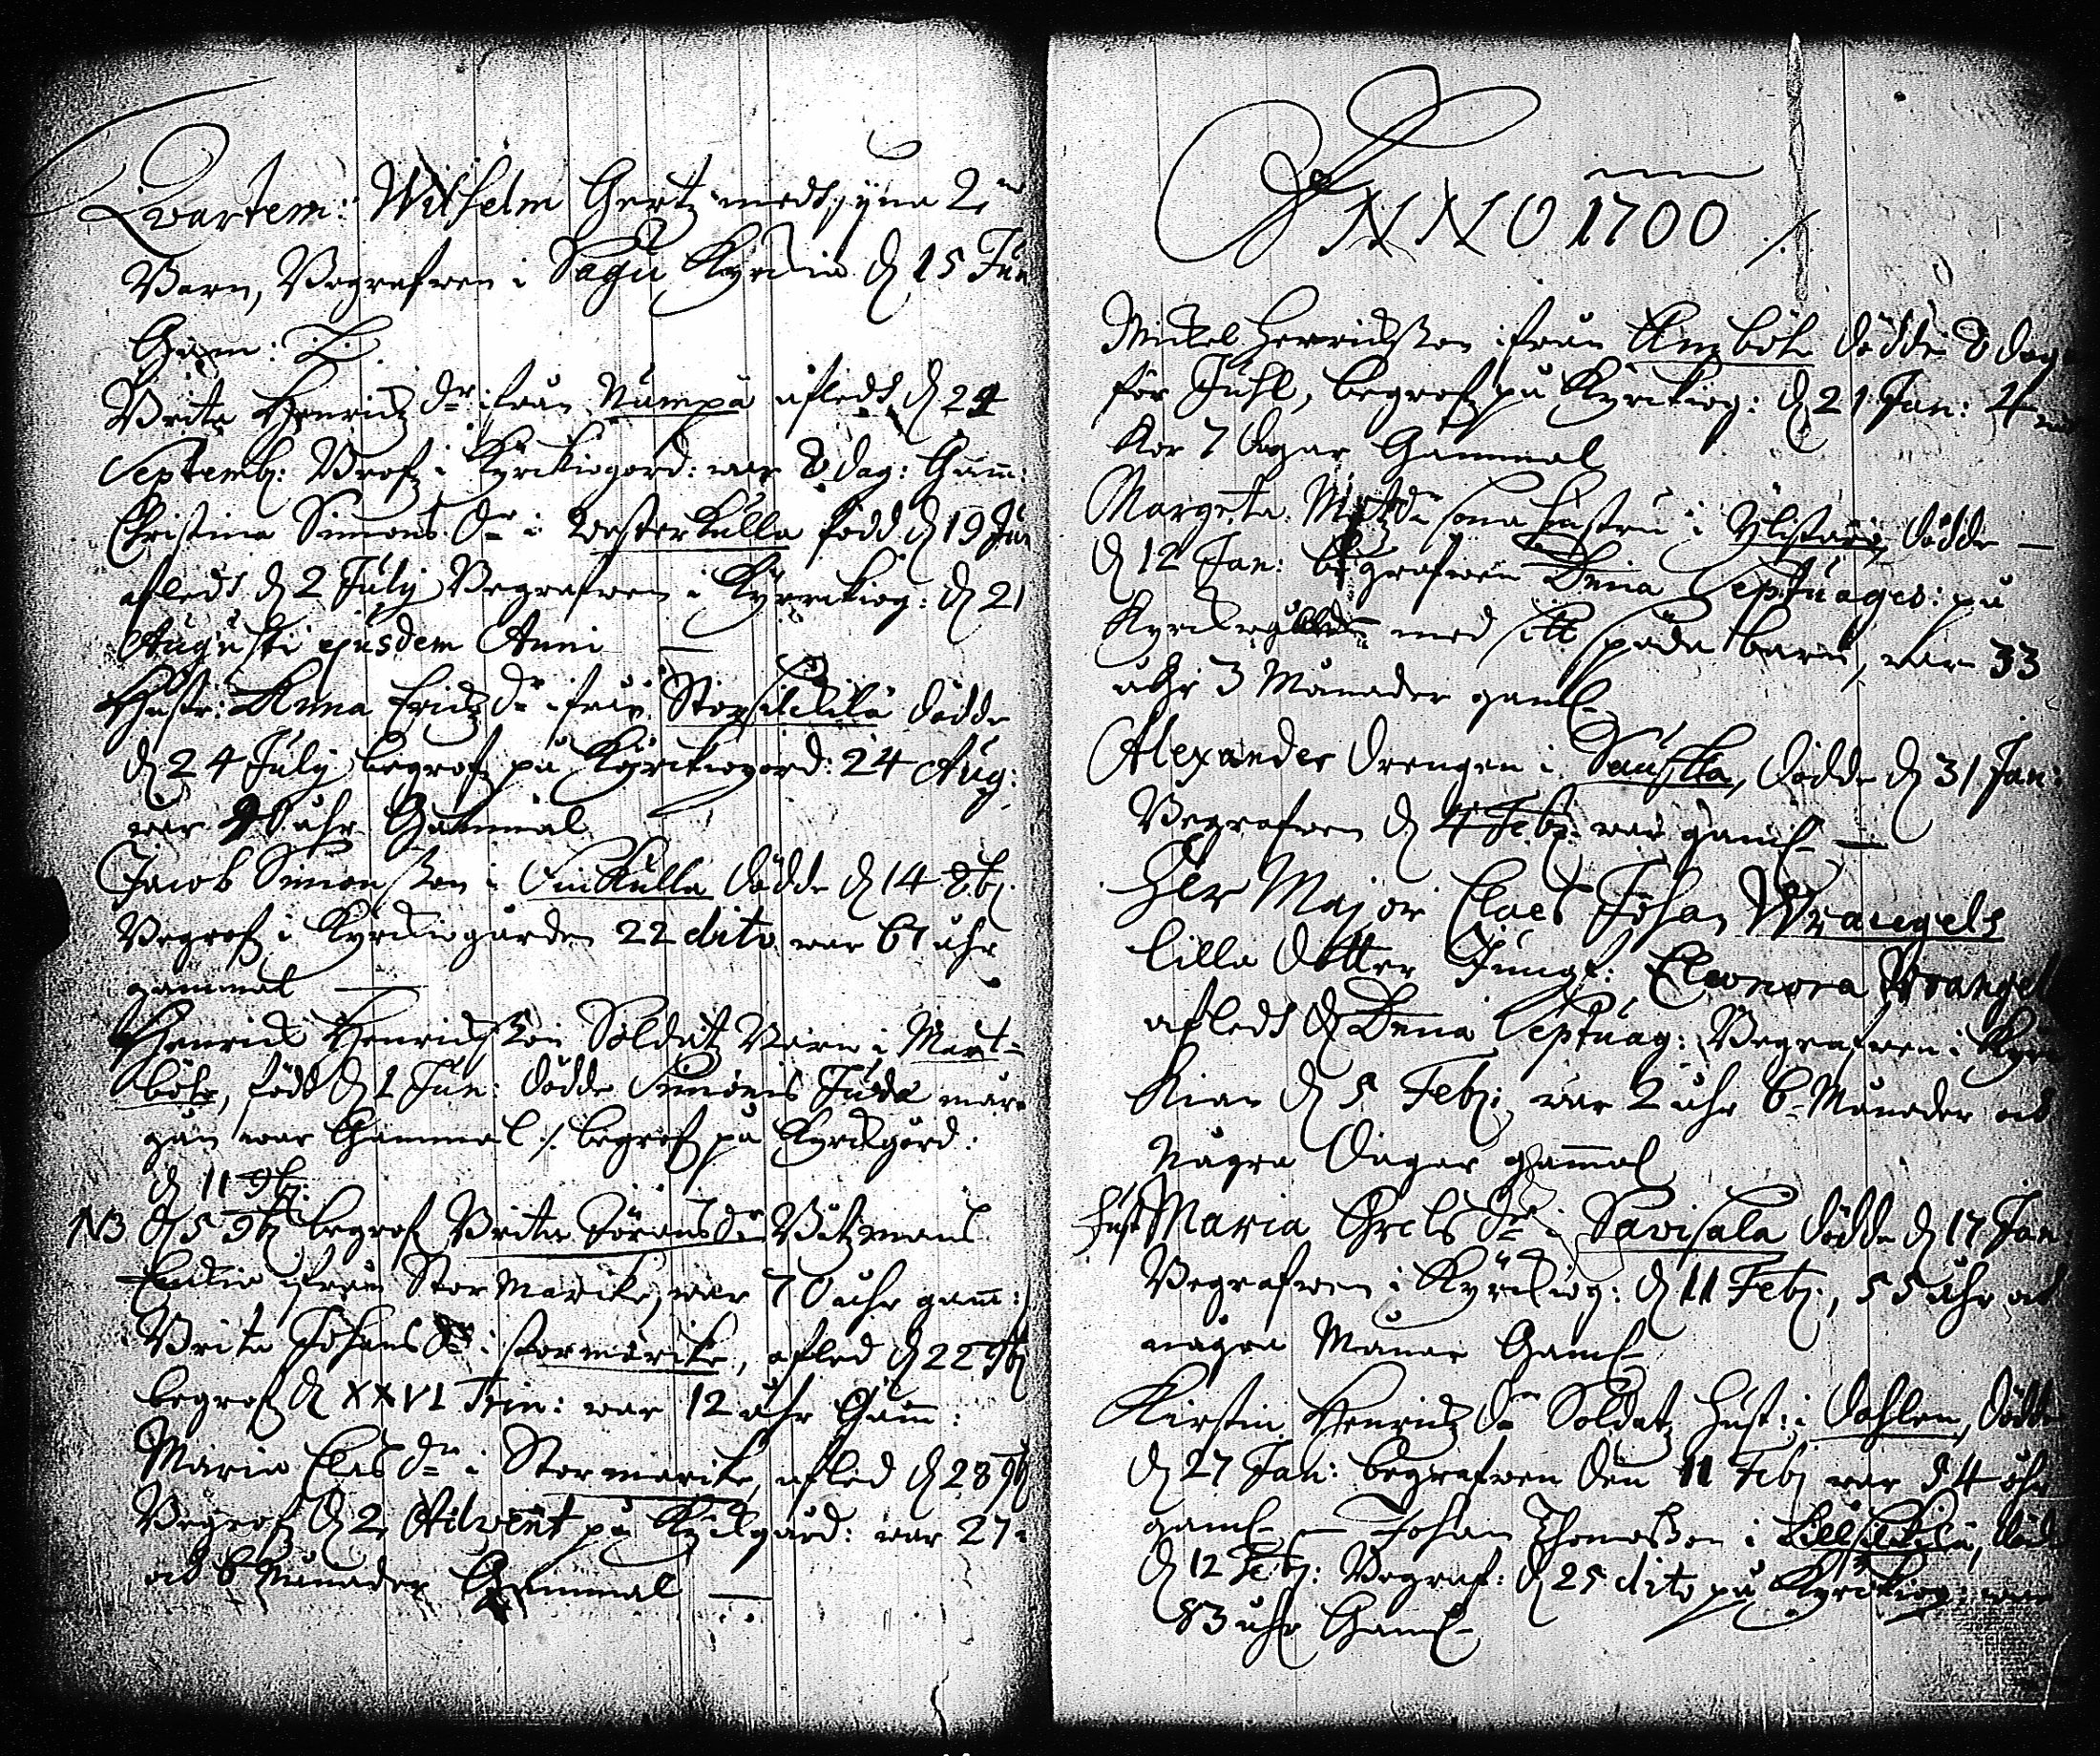 Qvartem: Wilhelm Gertz medh syna 2:ne
Barn, Begrafwen i Sagu Kyrckia d 15 Jun
Gam:
Brita Henrichz dr ifrån Numpa afledh d 24
Septemb: Begrof i Kyrckiogord: war 8 dag: Gam:
Christina Simons dr i Westerkulla född d 19 Jun
afledh d 2 July Begrafwen i Kyrckiog: d 21
Augusti ejusdem Anni
Hustr: Anna Erichz dr ifrån dödde
d 24 July begrof på Kyrckiogord: 24 Aug:
war 90 åhr Gammal
Jacob Simonsson i Finkulla dödde d 14 8b:
Begrof i Kyrckiogården 22 dito war 67 åhr
gammal
Henrich Henrichsson Soldat Barn i Mart-
böhle, född d 1 Jun: dödde Simonis Judæ mår
gån war Gammal ./. begrof på Kyrckgård:
d 11 9b:
N3 d 5 9b begrof Brita Jöransdr Båtzmans
Enckia ifrån Stor Marike, war 70 åhr gam:
Brita Johans dr i stormarike, afled d 22 9b
begrof d XXVI Trin: war 12 åhr Gam:
Maria Elis dr i Stormarike, afled d 28 9b
Begrof d 2 Advent på Kyrckgård: war 27
och 6 Månader Gammal
ANNO 1700 ./.
Mickel Henrichsson ifrån Ampböhle dödde 8 dag
för Juhl, begrof på Kyrckiog: d 21 Jan: 4
kor 7 dagar Gammal
Margeta Matzdr sona hustru i dödde
d 12 Jan: begrafwen Dnica Septuages: på
med sitt späda barn, war 33
åhr 3 Månader gaml
Alexander drengen i Sauskla, dödde d 31 Jan:
Begrafwen d 4 Feb: war gaml
Her Major Claes Johan Wrangels
lilla dotter Jungf: Eleonora Wrangel
afledh d Dnica Septuag: Begrafwen i Kyrc
kian d 5 Feb: war 2 åhr 6 Månader och
Någre dagar gammal
Hust Maria Grels dr i Savisala dödde d 17 Jan
Begrafwen i Kyrckiog: d 11 Feb:, 55 åhr och
någre Månar Gaml
Kirstin Henrichz dr Soldatz Hust: i Dahlen, dödde
d 27 Jan: begrafwen den 11 Feb war 34 åhr
gaml — Johan Thomasson i död
d 12 Feb: Begraf: d 25 dito på Kyrckiog: war
83 åhr Gaml